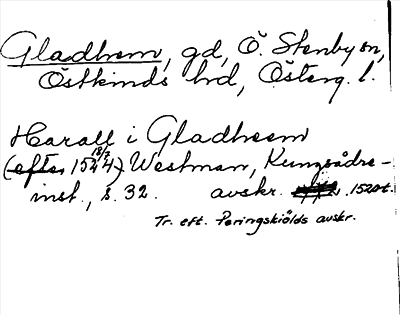 Gladhem, gd, Ö. Stenby sn,
Östkinds hd, Österg. l.
Harall i Gladheem
(efter 1544 18/3). Westman, Kungsådre-
inst., s. 32. avskr. 1520 t.
Tr. eft. Peringskiölds avskr.